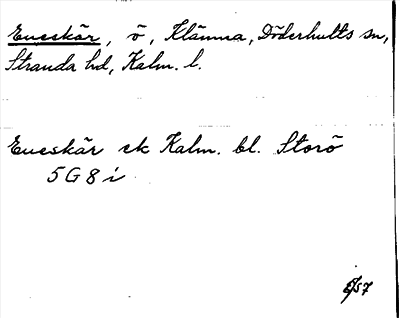 Eneskär, ö, Klämna, Döderhults sn,
Stranda hd, Kalm. l.
Eneskär ek Kalm. bl. Storö
5 G 8 i